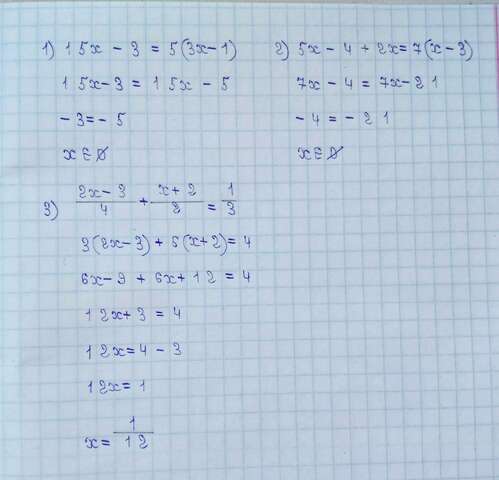 1) 15x - 3 = 5(3x-1)
15x-3 = 15x - 5
-3=-5
x∈∅
2) 5x - 4 + 2x = 7(x-3)
7x - 4 = 7x-21
-4 = -21
x∈∅
3) (2x-3)/4 + (x+2)/2 = 1/3
3(2x-3) + 6(x+2) = 4
6x-9 + 6x+12 = 4
12x+3 = 4
12x=4-3
12x=1
x=1/12